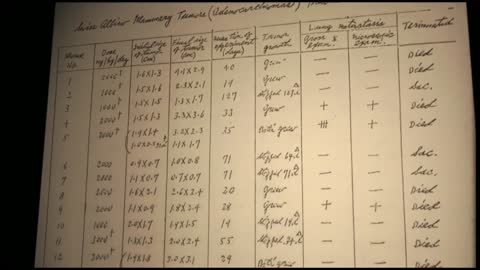 Swiss Albino Mammary Tumors (Adenocarcinomas)
Lung metastasis
Mouse No. Dose mg/kg/day Initial size of tumor (cm) Final size of tumor (cm) Duration of experiment (days) Tumor growth Gross exam. Microscopic exam. Terminated
1 2000† 1.6 X 1.3 4.1 X 2.9 40 Grew — — Died
2 1000† 1.6 X 1.5 2.3 X 2.1 19 Grew — — Died
3 1000† 1.5 X 1.5 1.3 X 1.7 127 Stopped — — Sac.
4 2000† 1.5 X 1.3 3.3 X 3.6 33 Grew + + Died
5 2000† 1.9 X 1.1 3.2 X 2.3 35 Both grew + Died
1.1 X 1.7
6 2000 0.9 X 0.7 1.0 X 0.8 71 Stopped — — Sac.
7 2000 1.1 X 0.7 0.7 X 0.7 71 Stopped — — Sac.
8 2000 1.6 X 2.1 2.6 X 2.4 20 Grew — — Died
9 2000 1.1 X 0.9 1.8 X 2.4 28 Grew + + Died
10 1000 2.0 X 1.7 1.4 X 1.5 14 Stopped — — Died
11 3000† 1.1 X 1.3 2.0 X 2.4 55 Stopped — — Died
12 2000† 1.4 X 1.8 2.0 X 3.1 29 Grew — — Died